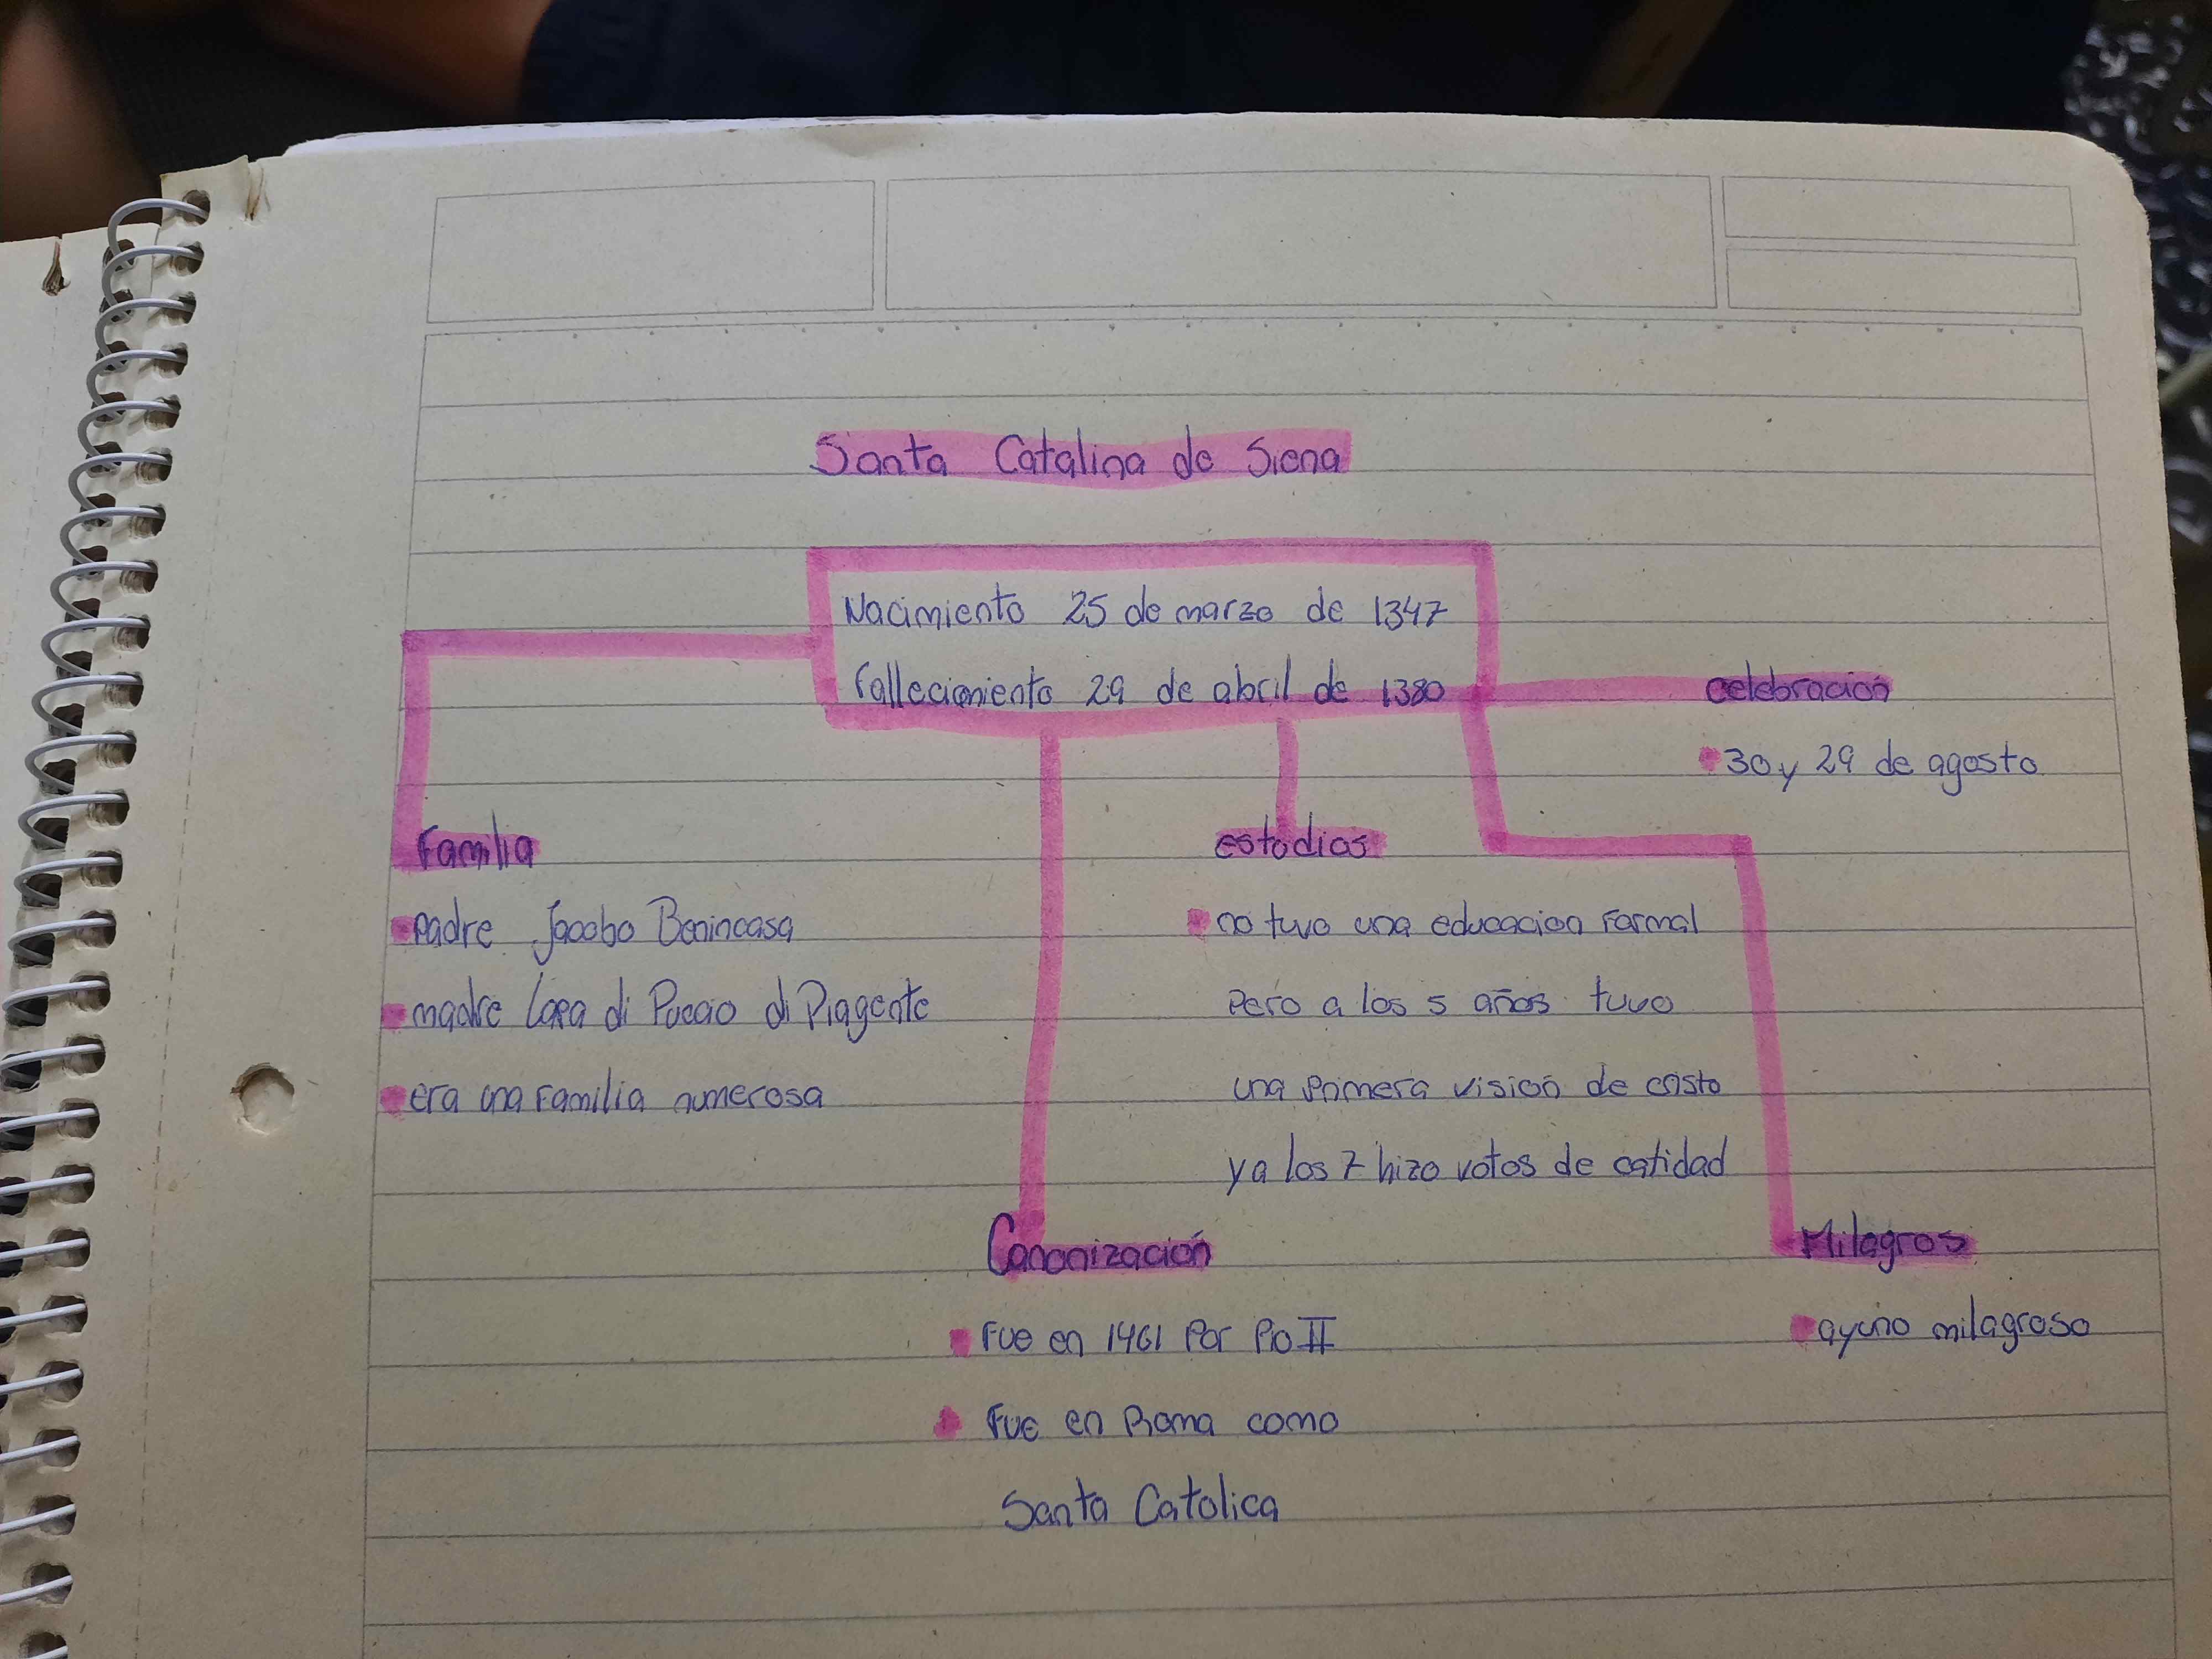 Santa Catalina de Siena
Nacimiento 25 de marzo de 1347
Fallecimiento 29 de abril de 1380
celebración
30 y 29 de agosto
Familia
Padre Jacobo Benincasa
madre Lapa di Puccio di Piagente
era una Familia numerosa
estudios
no tuvo una educacion Formal
Pero a los 5 años tuvo
una Primera visión de cristo
y a los 7 hizo votos de catidad
Canonización
Fue en 1461 Por Pio II
Fue en Roma como
Santa Catolica
Milagros
ayuno milagroso